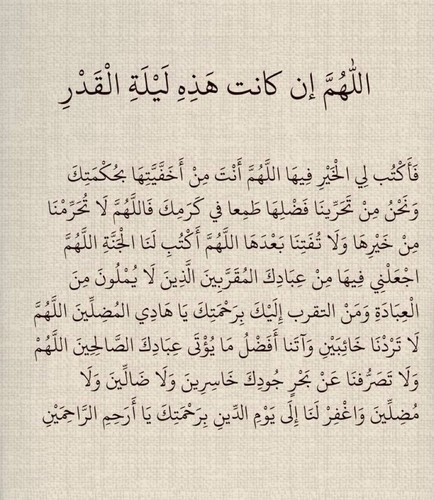 اللّٰهُمَّ إن كانت هَذِهِ لَيْلَةِ الْقَدْرِ
فَأَكْتُب لِي الْخَيْرِ فِيهَا اللَّهُمَّ أَنْتَ مِنْ أَخَفَّيَّتِهَا بِحُكْمَتِكَ
وَنَحْنُ مِنْ تَحَرِّينَا فَضْلِهَا طَمِعا في كَرَمِكَ فَاللَّهُمَّ لَا تُحَرِّمْنَا
مِنْ خَيْرِهَا وَلَا تُفَتِنَا بَعْدَهَا اللَّهُمَّ أَكْتُبِ لَنَا الْجَنَّةِ اللَّهُمَّ
اجَعَلْنِي فِيهَا مِنْ عِبَادِكَ المُقَرَّبِينَ الَّذِينَ لَا يُمْلُونَ مِنَ
الْعِبَادَةِ وَمَنْ التقرب إلَيْكَ بِرَحْمَتِكَ يَا هَادِي المُضِلِّينَ اللَّهُمَّ
لَا تَرْدْنَا خَائِبَيْنِ وَآتَنا أَفْضَلُ مَا يُؤْتَى عِبَادِكَ الصَّالِحِينَ اللَّهُمْ
وَلَا تَصَرُّفنَا عَنْ بَحْرِ جُودِكَ خَاسِرِينَ وَلَا ضَالِّينَ وَلَا
مُضِلِّينَ وَاغْفِرْ لَنَا إلَى يَوْمِ الدِّينِ بِرَحْمَتِكَ يَا أَرحِمِ الرَّاحِمَيْنِ